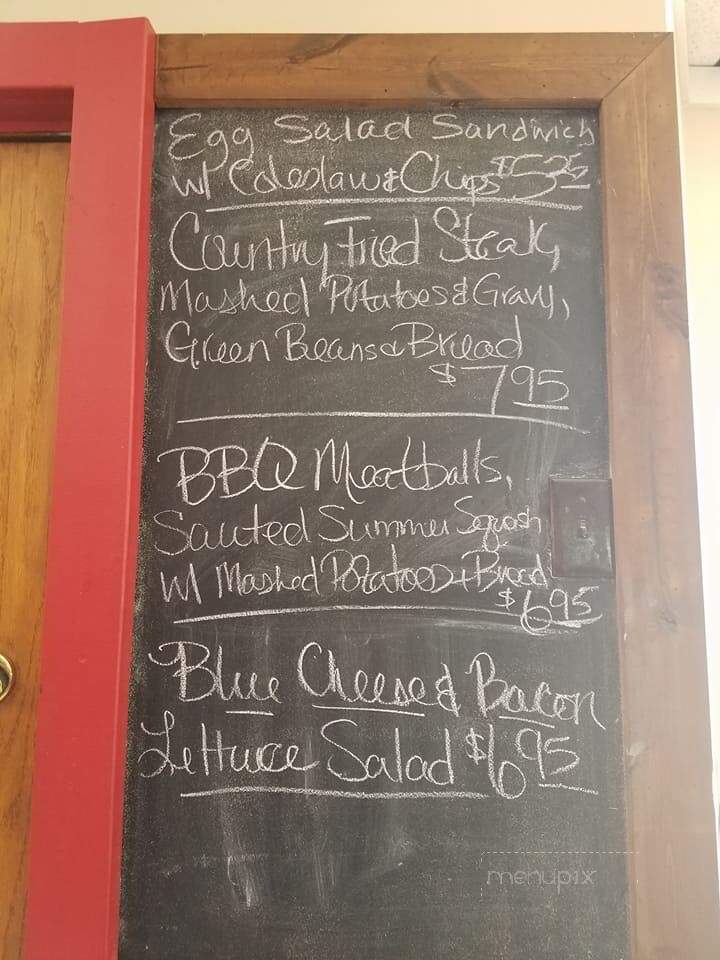 Egg Salad Sandwich
w/ Coleslaw & Chips $5.25
Country Fried Steak,
Mashed Potatoes & Gravy,
Green Beans & Bread
$7.95
BBQ Meatballs,
Sauted Summer Squash
w/ Mashed Potatoes + Bread
$6.95
Blue Cheese & Bacon
Lettuce Salad $6.95
menupix